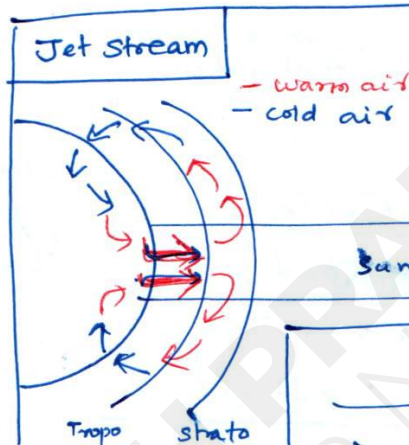 Jet Stream
- warm air
- cold air
Sun
Tropo
Strato